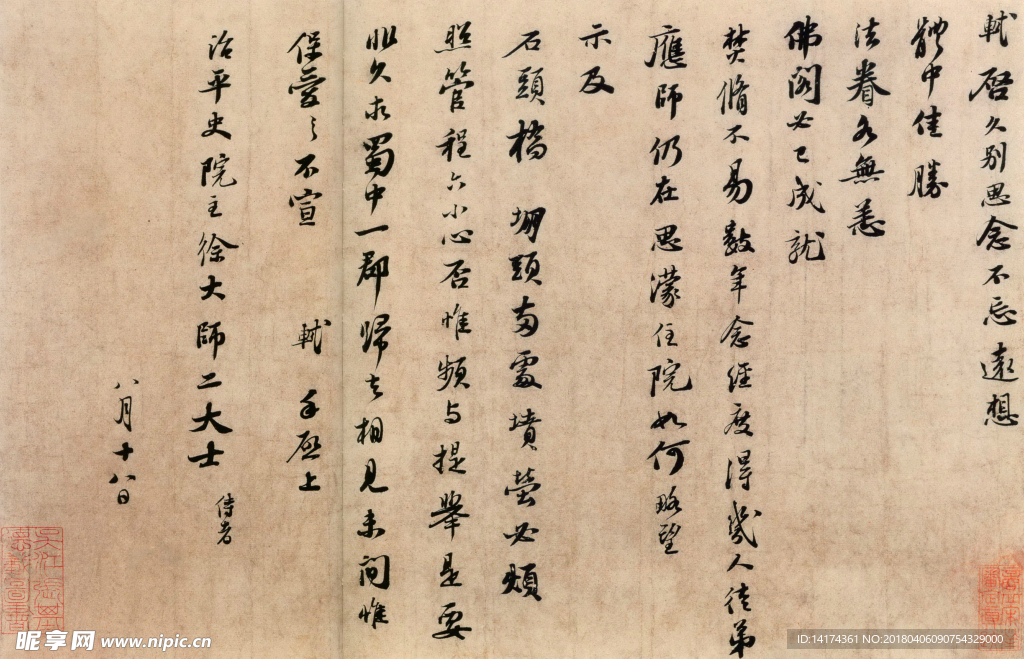 軾啓久別思念不忘遠想
體中佳勝
法眷各無恙
佛閣必已成就
焚脩不易數年念經度得幾人徒弟
應師仍在思濛住院如何略望
示及
石頭橋堋頭兩處墳塋必煩
照管程六小心否惟頻与提舉是要
非久求蜀中一郡歸去相見未間惟
保愛之不宣 軾手啓上
治平史院主徐大師二大士侍者
八月十八日
昵享网 www.nipic.cn
ID:14174361 NO:20180406090754329000